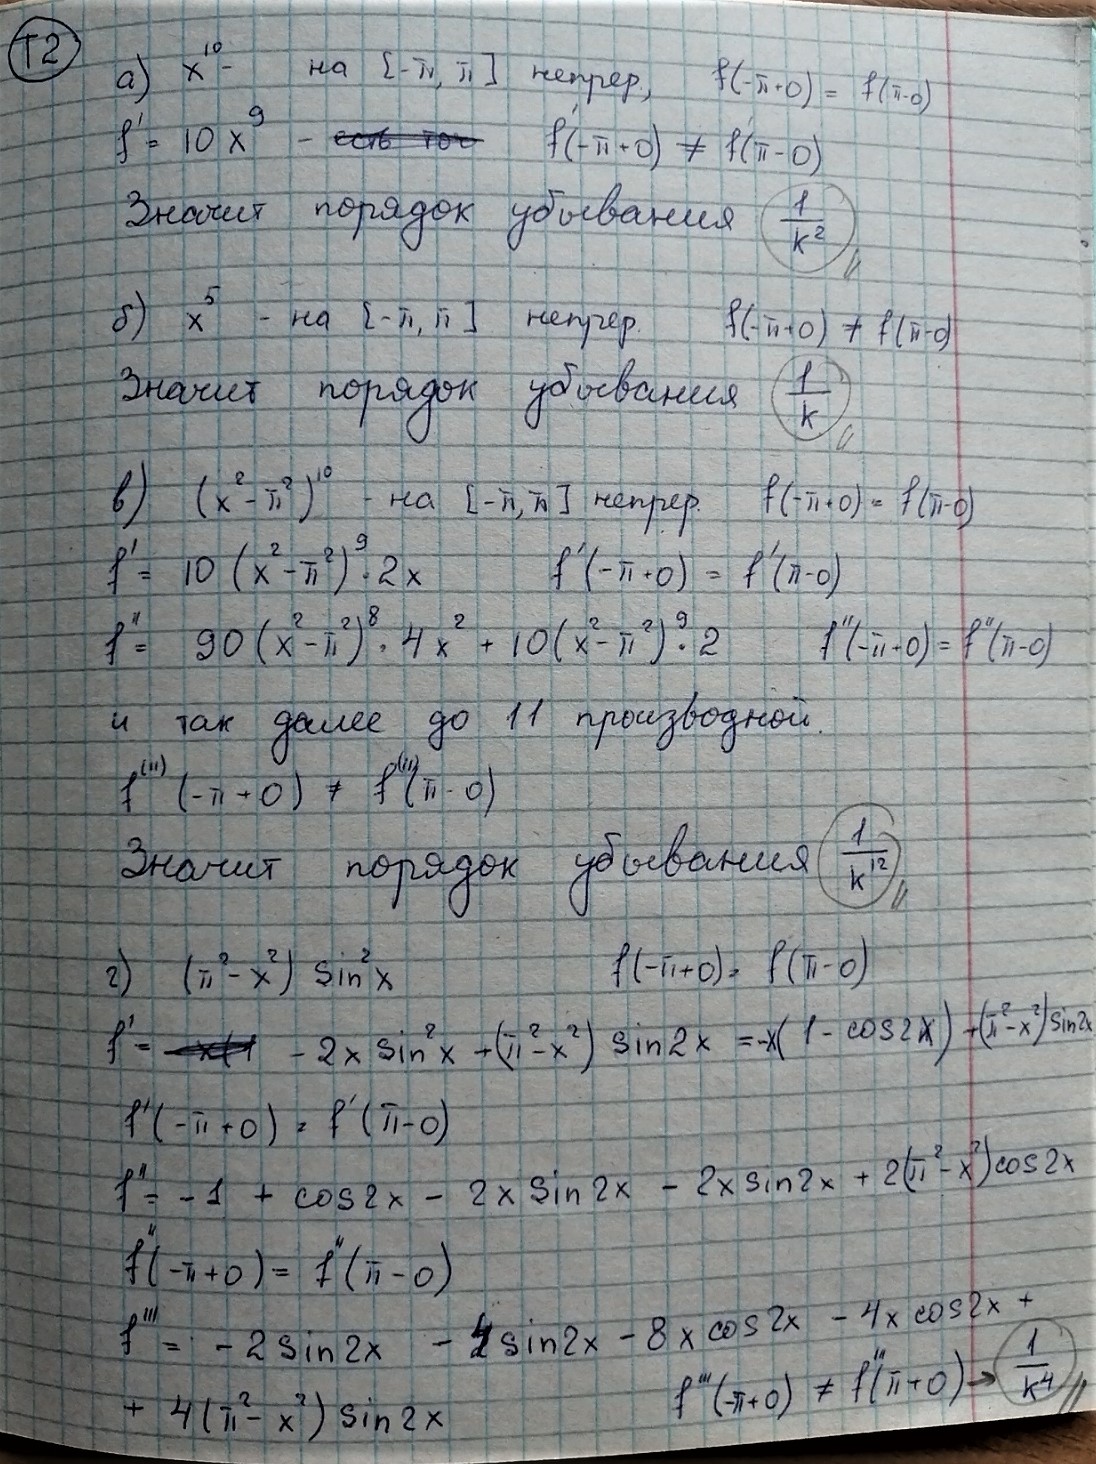 Т2
а) x¹⁰ - на [-π, π] непрер., f(-π+0) = f(π-0)
f' = 10x⁹ - f'(-π+0) ≠ f'(π-0)
Значит порядок убывания 1/k²
б) x⁵ - на [-π, π] непрер. f(-π+0) ≠ f(π-0)
Значит порядок убывания 1/k
в) (x²-π²)¹⁰ - на [-π, π] непрер. f(-π+0) = f(π-0)
f' = 10(x²-π²)⁹·2x f'(-π+0) = f'(π-0)
f'' = 90(x²-π²)⁸·4x² + 10(x²-π²)⁹·2 f''(-π+0) = f''(π-0)
и так далее до 11 производной.
f⁽¹¹⁾(-π+0) ≠ f⁽¹¹⁾(π-0)
Значит порядок убывания 1/k¹²
г) (π²-x²) sin²x f(-π+0) = f(π-0)
f' = -2x sin²x + (π²-x²) sin2x = -x(1-cos2x) + (π²-x²) sin2x
f'(-π+0) = f'(π-0)
f'' = -1 + cos2x - 2x sin2x - 2x sin2x + 2(π²-x²) cos2x
f''(-π+0) = f''(π-0)
f''' = -2 sin2x - sin2x - 8x cos2x - 4x cos2x +
+ 4(π²-x²) sin2x f'''(-π+0) ≠ f'''(π+0) → 1/k⁴